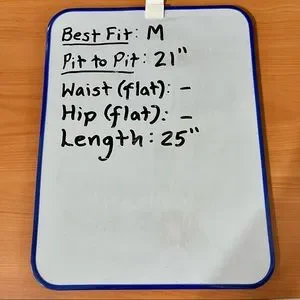 Best Fit: M
Pit to Pit: 21"
Waist (flat): -
Hip (flat): -
Length: 25"